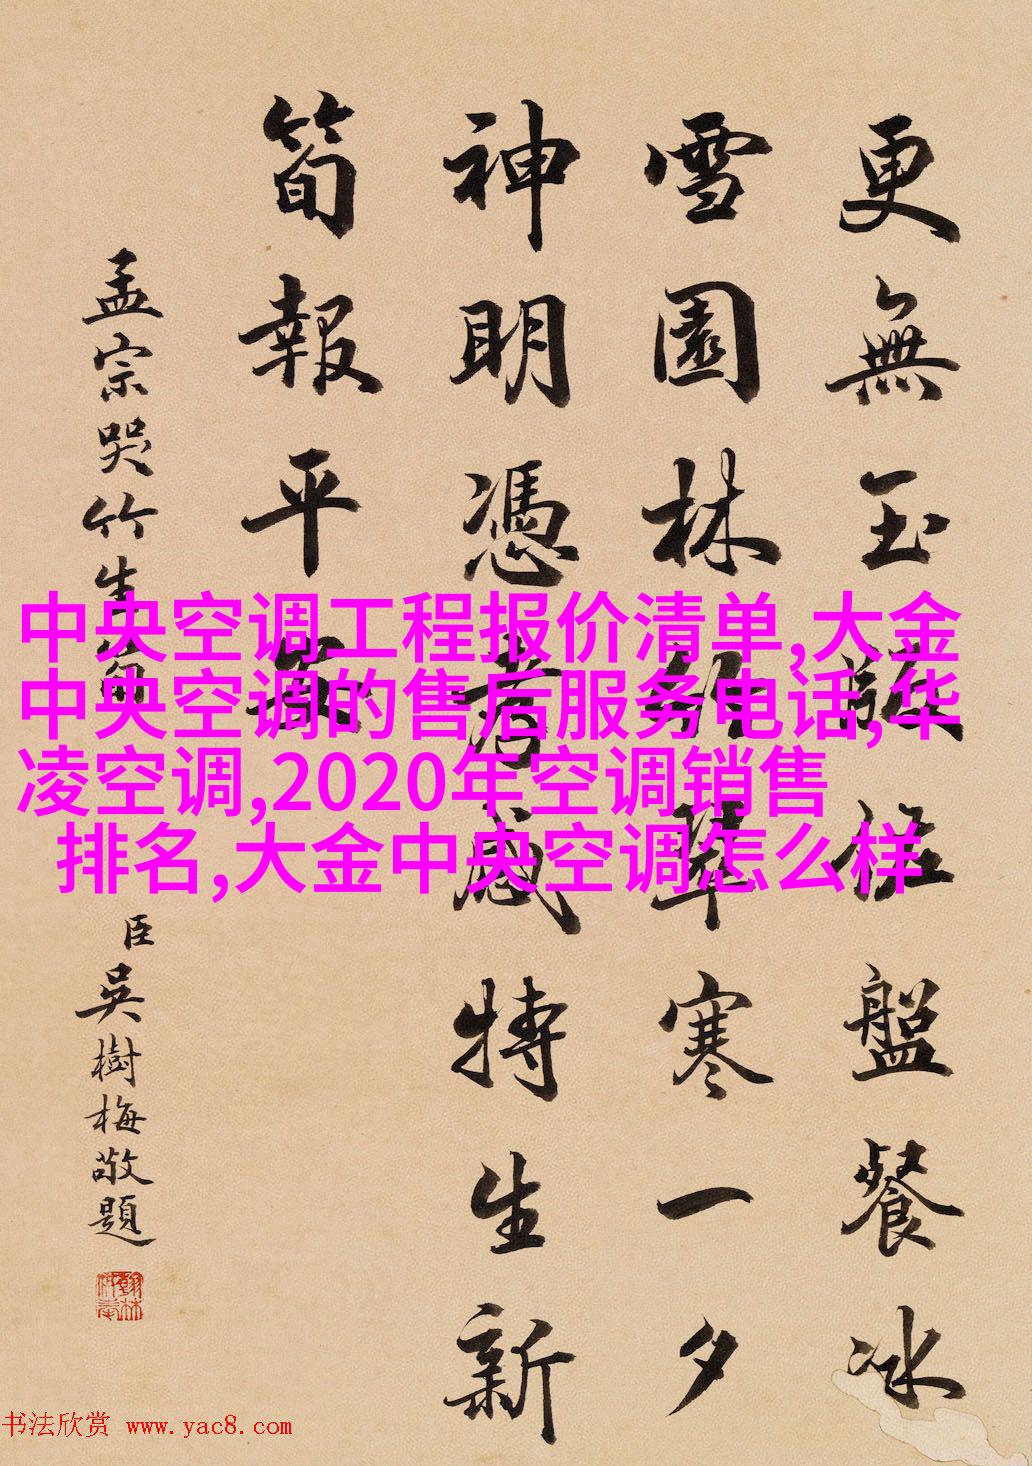 更無玉佐盤餐冰
雪園林翠寒一夕
神明憑孝感特生新
筍報平安
孟宗哭竹生筍
臣吳樹梅敬題
中央空调工程报价清单,大金
中央空调的售后服务电话,华
凌空调,2020年空调销售
排名,大金中央空调怎么样
书法欣赏 www.yac8.com